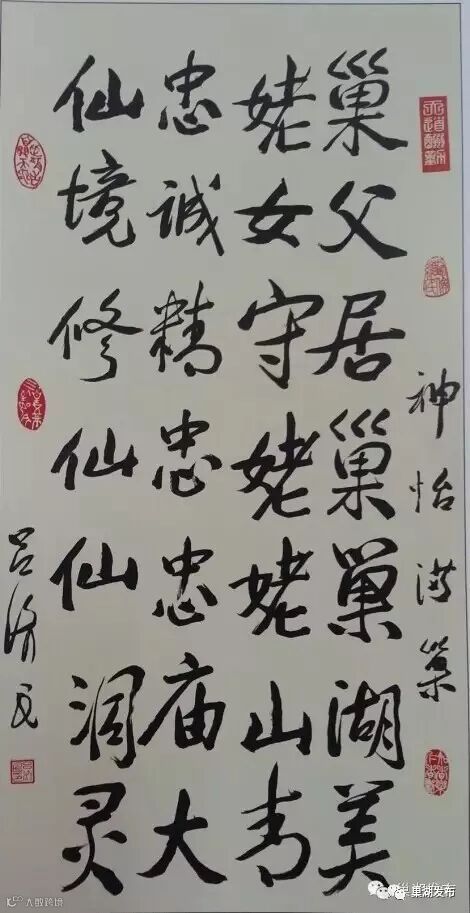 神怡
巢
天道酬勤
巢父居巢巢湖美
姥女守姥姥山青
忠诚精忠忠庙大
仙境修仙仙洞灵
吕济民
巢湖发布
大数跨境